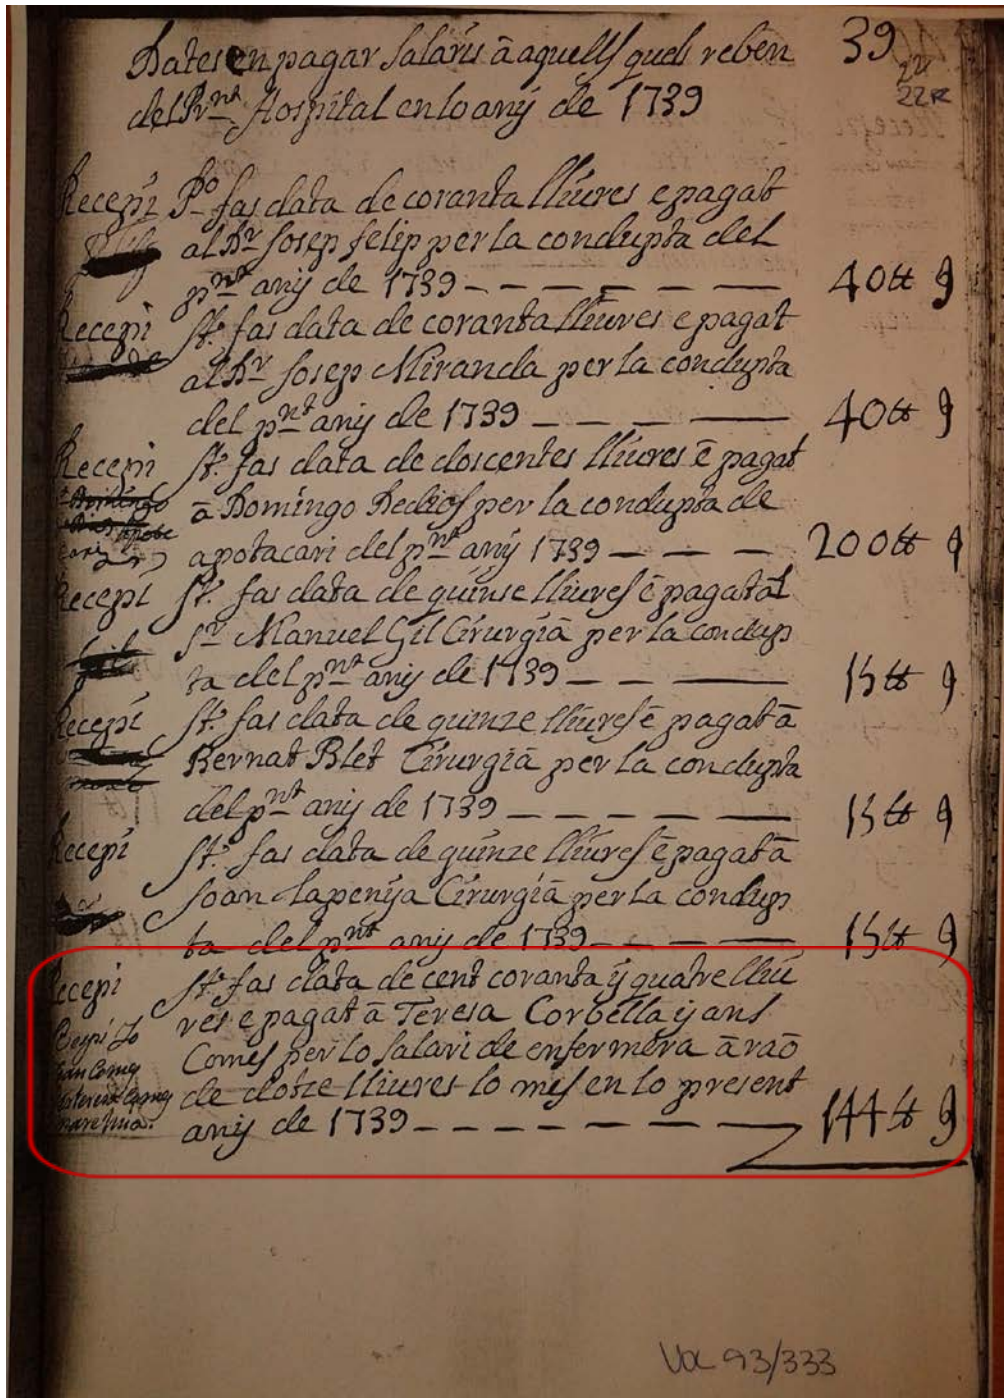 Dates en pagar salaris ā aquells quels reben 39
del Prnt Hospital en lo anÿ de 1739
22
22R
Recepi Po fas data de coranta lliures e pagat
al Dr Josep felip per la condupta del
pnt anÿ de 1739 — — — — — — 40 ᵗᵗ 9
Recepi Jt. fas data de coranta lliures e pagat
al Dr Josep Miranda per la condupta
del pnt anÿ de 1739 — — — 40 ᵗᵗ 9
Recepi Jt. fas data de doscentes lliures ē pagat
ā Domingo Dedios per la condupta de
apotacari del pnt anÿ 1739 — — — 200 ᵗᵗ 9
Recepi Jt. fas data de quinse lliures ē pagat al
Sr Manuel Gil Cirurgiā per la condup
ta del pnt anÿ de 1739 — — — 15 ᵗᵗ 9
Recepi Jt. fas data de quinze lliures ē pagat ā
Bernat Blet Cirurgiā per la condupta
del pnt anÿ de 1739 — — — — — 15 ᵗᵗ 9
Recepi Jt. fas data de quinze lliures ē pagat ā
Joan Lapenÿa Cirurgiā per la condup
ta del pnt anÿ de 1739 — — — — 15 ᵗᵗ 9
Recepi Jt. fas data de cent coranta ÿ quatre lliu
res e pagat ā Teresa Corbella ÿ ans
Comes per lo salari de enfermera ā raō
de dotze lliures lo mes en lo present
anÿ de 1739 — — — — — — — 144 ᵗᵗ 9
Recepi Jo
Comes
Comes
mare mia.
Vol 93/333